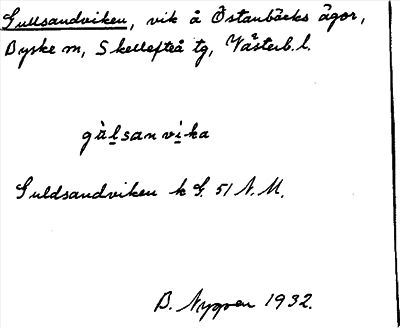 Gullsandviken, vik å Östanbäcks ägor,
Byske sn, Skellefteå tg, Västerb. l.
gùl̲sanvi̲ka
Guldsandviken k G. 51 N. M.
B. Nygren 1932.